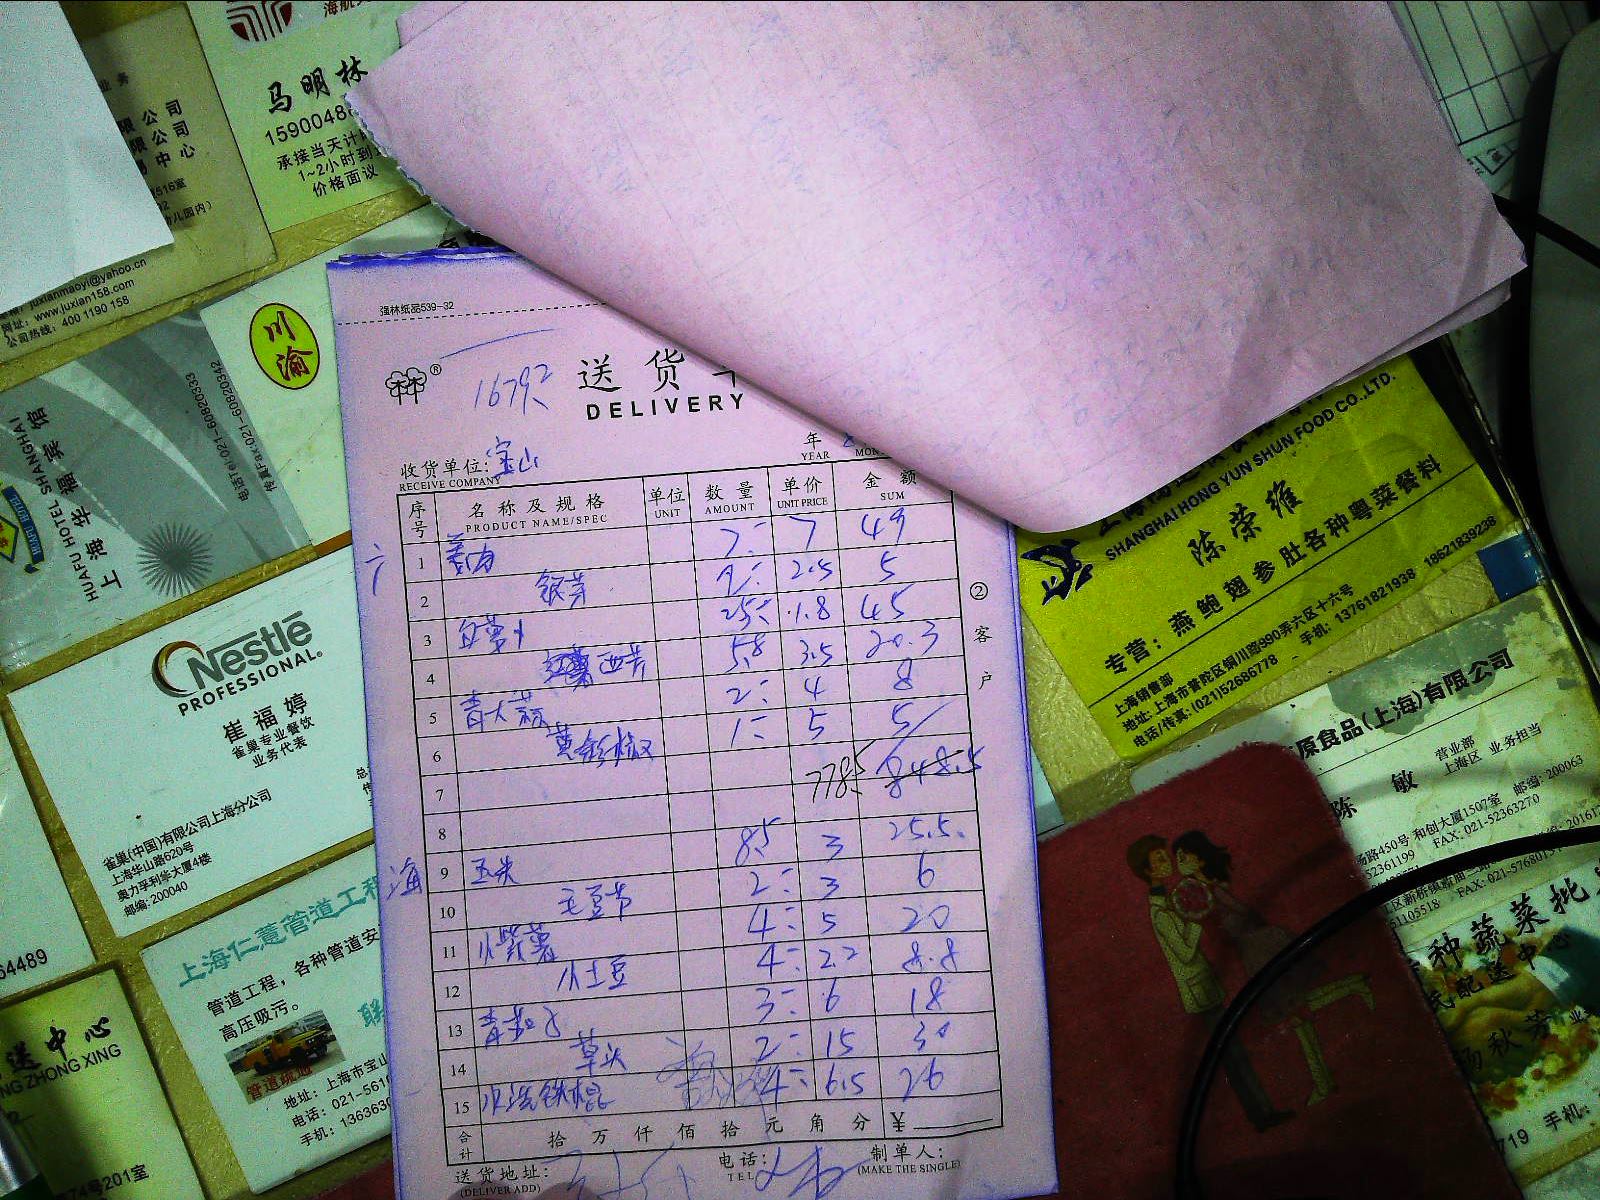 海航
马明林
1590048
承接当天计
1~2小时到
价格面议
业务
限公司
限公司
易中心
516室
幼儿园内)
juxianmaoyi@yahoo.cn
网址: www.juxian158.com
公司热线: 400 1190 158
川渝
HUAFU HOTEL SHANGHAI
上海华福宾馆
电话Tel:021-60820333
传真Fax:021-60820342
Nestlé
PROFESSIONAL
崔福婷
雀巢专业餐饮
业务代表
雀巢(中国)有限公司上海分公司
上海华山路620号
奥力孚利学大厦4楼
邮编: 200040
上海仁薏管道工程
管道工程, 各种管道安
高压吸污。
联
管道疏通
地址: 上海市宝山
电话: 021-5610
手机: 1363630
64489
送中心
NG ZHONG XING
74号201室
强林纸品539-32
林®
16792
送货单
DELIVERY
收货单位: 宝山
RECEIVE COMPANY
年
YEAR
序号 名称及规格 单位 数量 单价 金额
PRODUCT NAME/SPEC UNIT AMOUNT UNIT PRICE SUM
1 7 7 49
2 银芽 2 2.5 5
3 白萝卜 25 1.8 45
4 西芹 5.8 3.5 20.3
5 青大蒜 2 4 8
6 黄彩椒 1 5 5
7 778.5 848.5
8
8.5 3 25.5
海 9 玉米
10 毛豆节 2 3 6
11 小紫薯 4 5 20
12 小土豆 4 2.2 8.8
13 青茄子 3 6 18
14 草头 2 15 30
15 4 6.5 26
合计 拾万仟佰拾元角分 ¥
送货地址:
(DELIVER ADD)
电话:
TEL
制单人:
(MAKE THE SINGLE)
②客户
SHANGHAI HONG YUN SHUN FOOD CO.,LTD.
陈荣维
专营: 燕鲍翅参肚各种粤菜餐料
上海销售部
地址: 上海市普陀区铜川路990弄六区十六号
电话/传真: (021)52686778 手机: 13761821938 18621839238
原食品(上海)有限公司
陈敏
营业部
上海区 业务担当
场路450号 和创大厦1507室 邮编: 200063
52361199 FAX: 021-52363270
FAX: 021-5768015
51105518
种蔬菜批
配送中心
杨秋芳
719 手机: